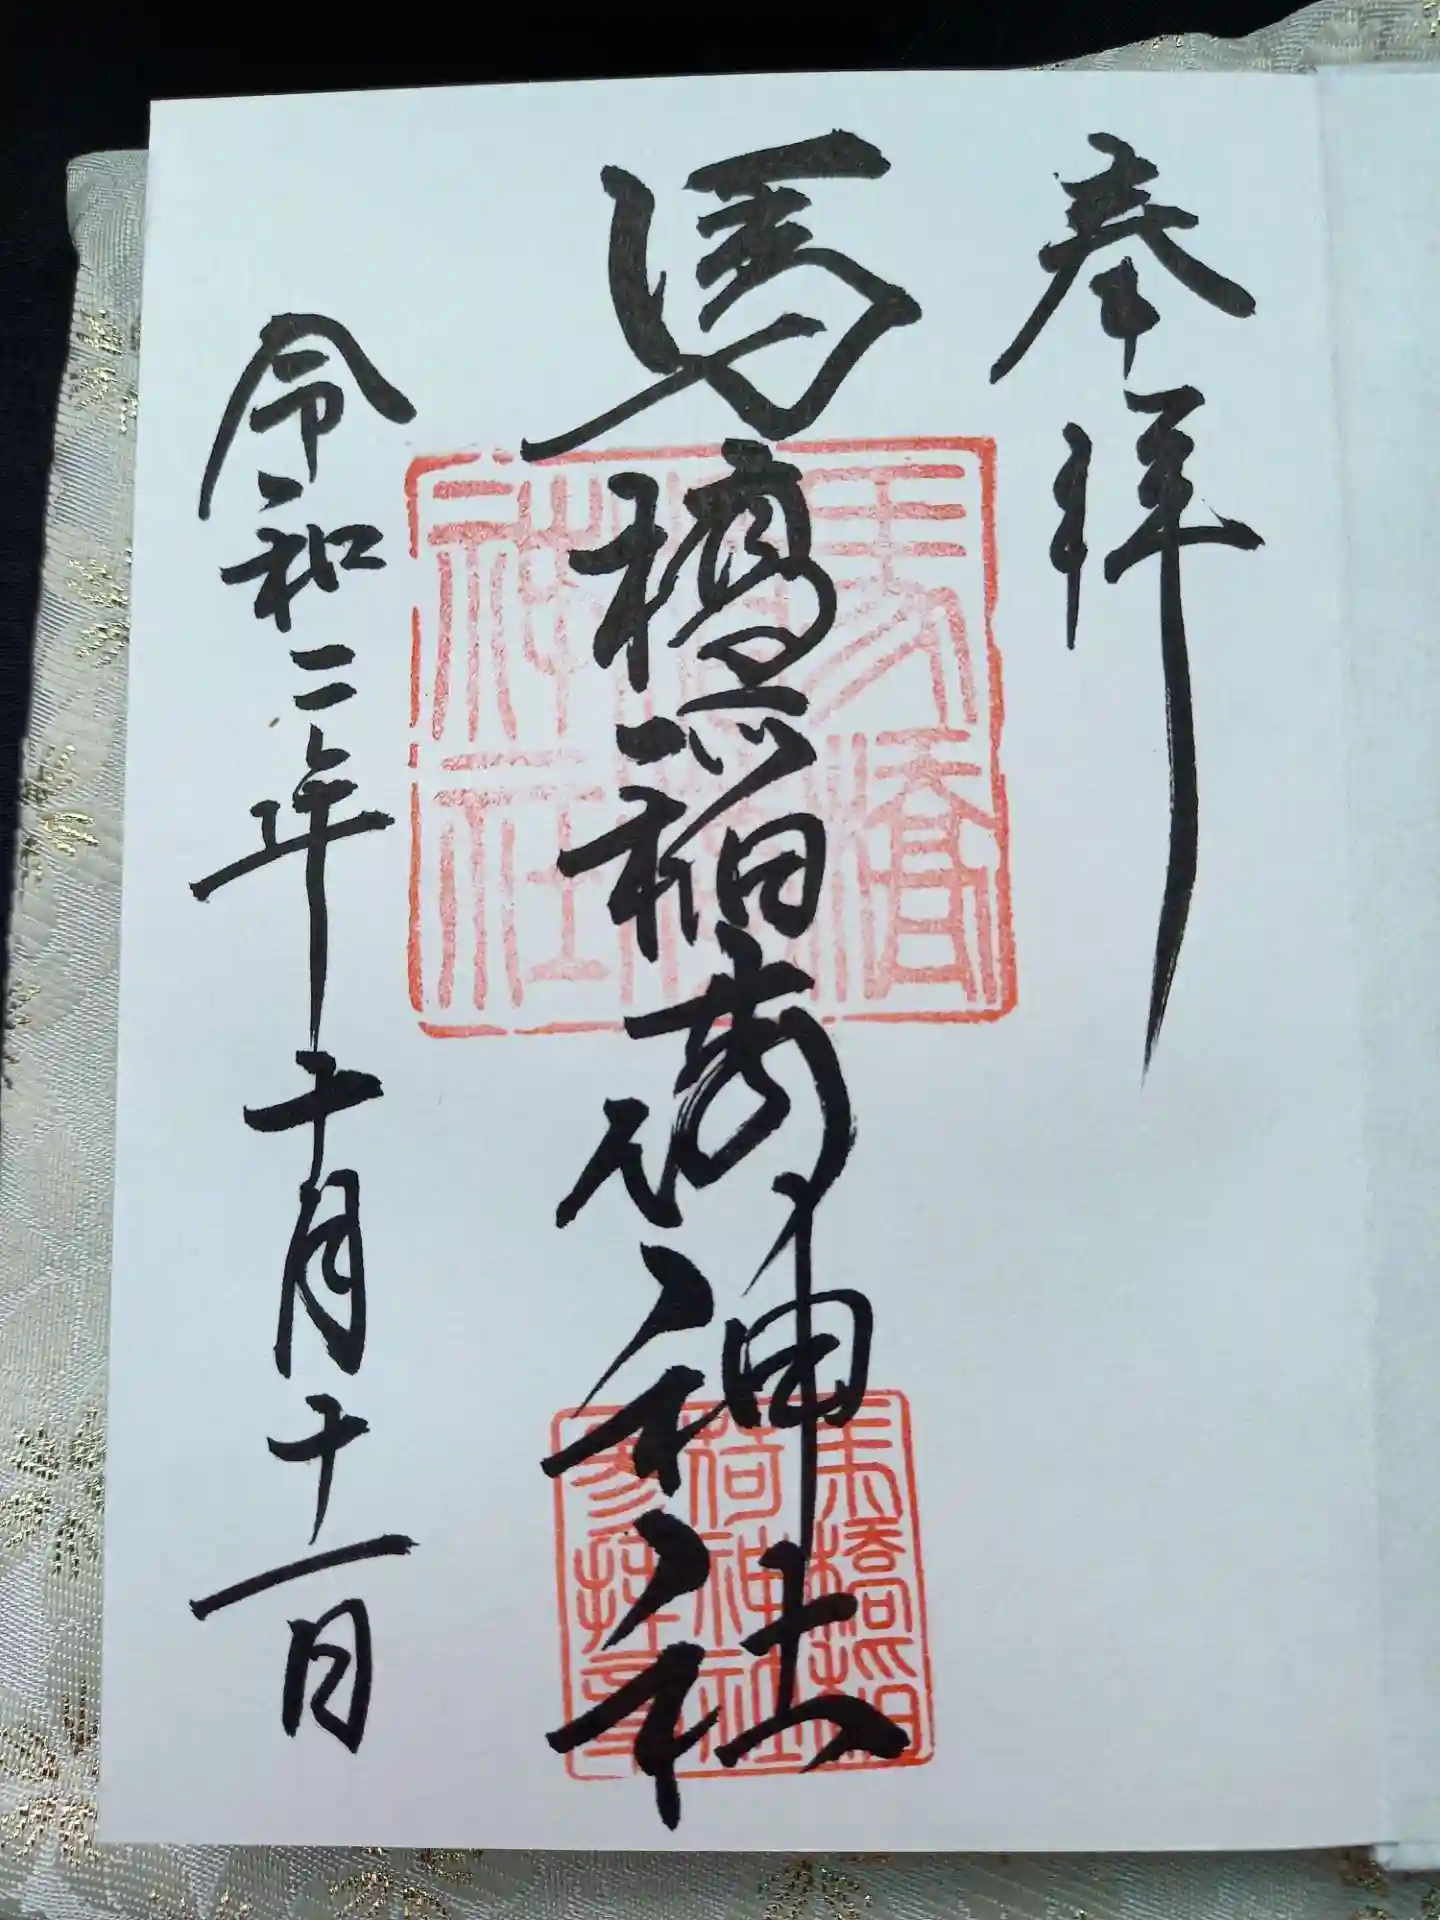 奉拝
馬橋稲荷神社
令和二年十月十一日
馬橋稲荷神社
馬橋稲荷神社参拝章